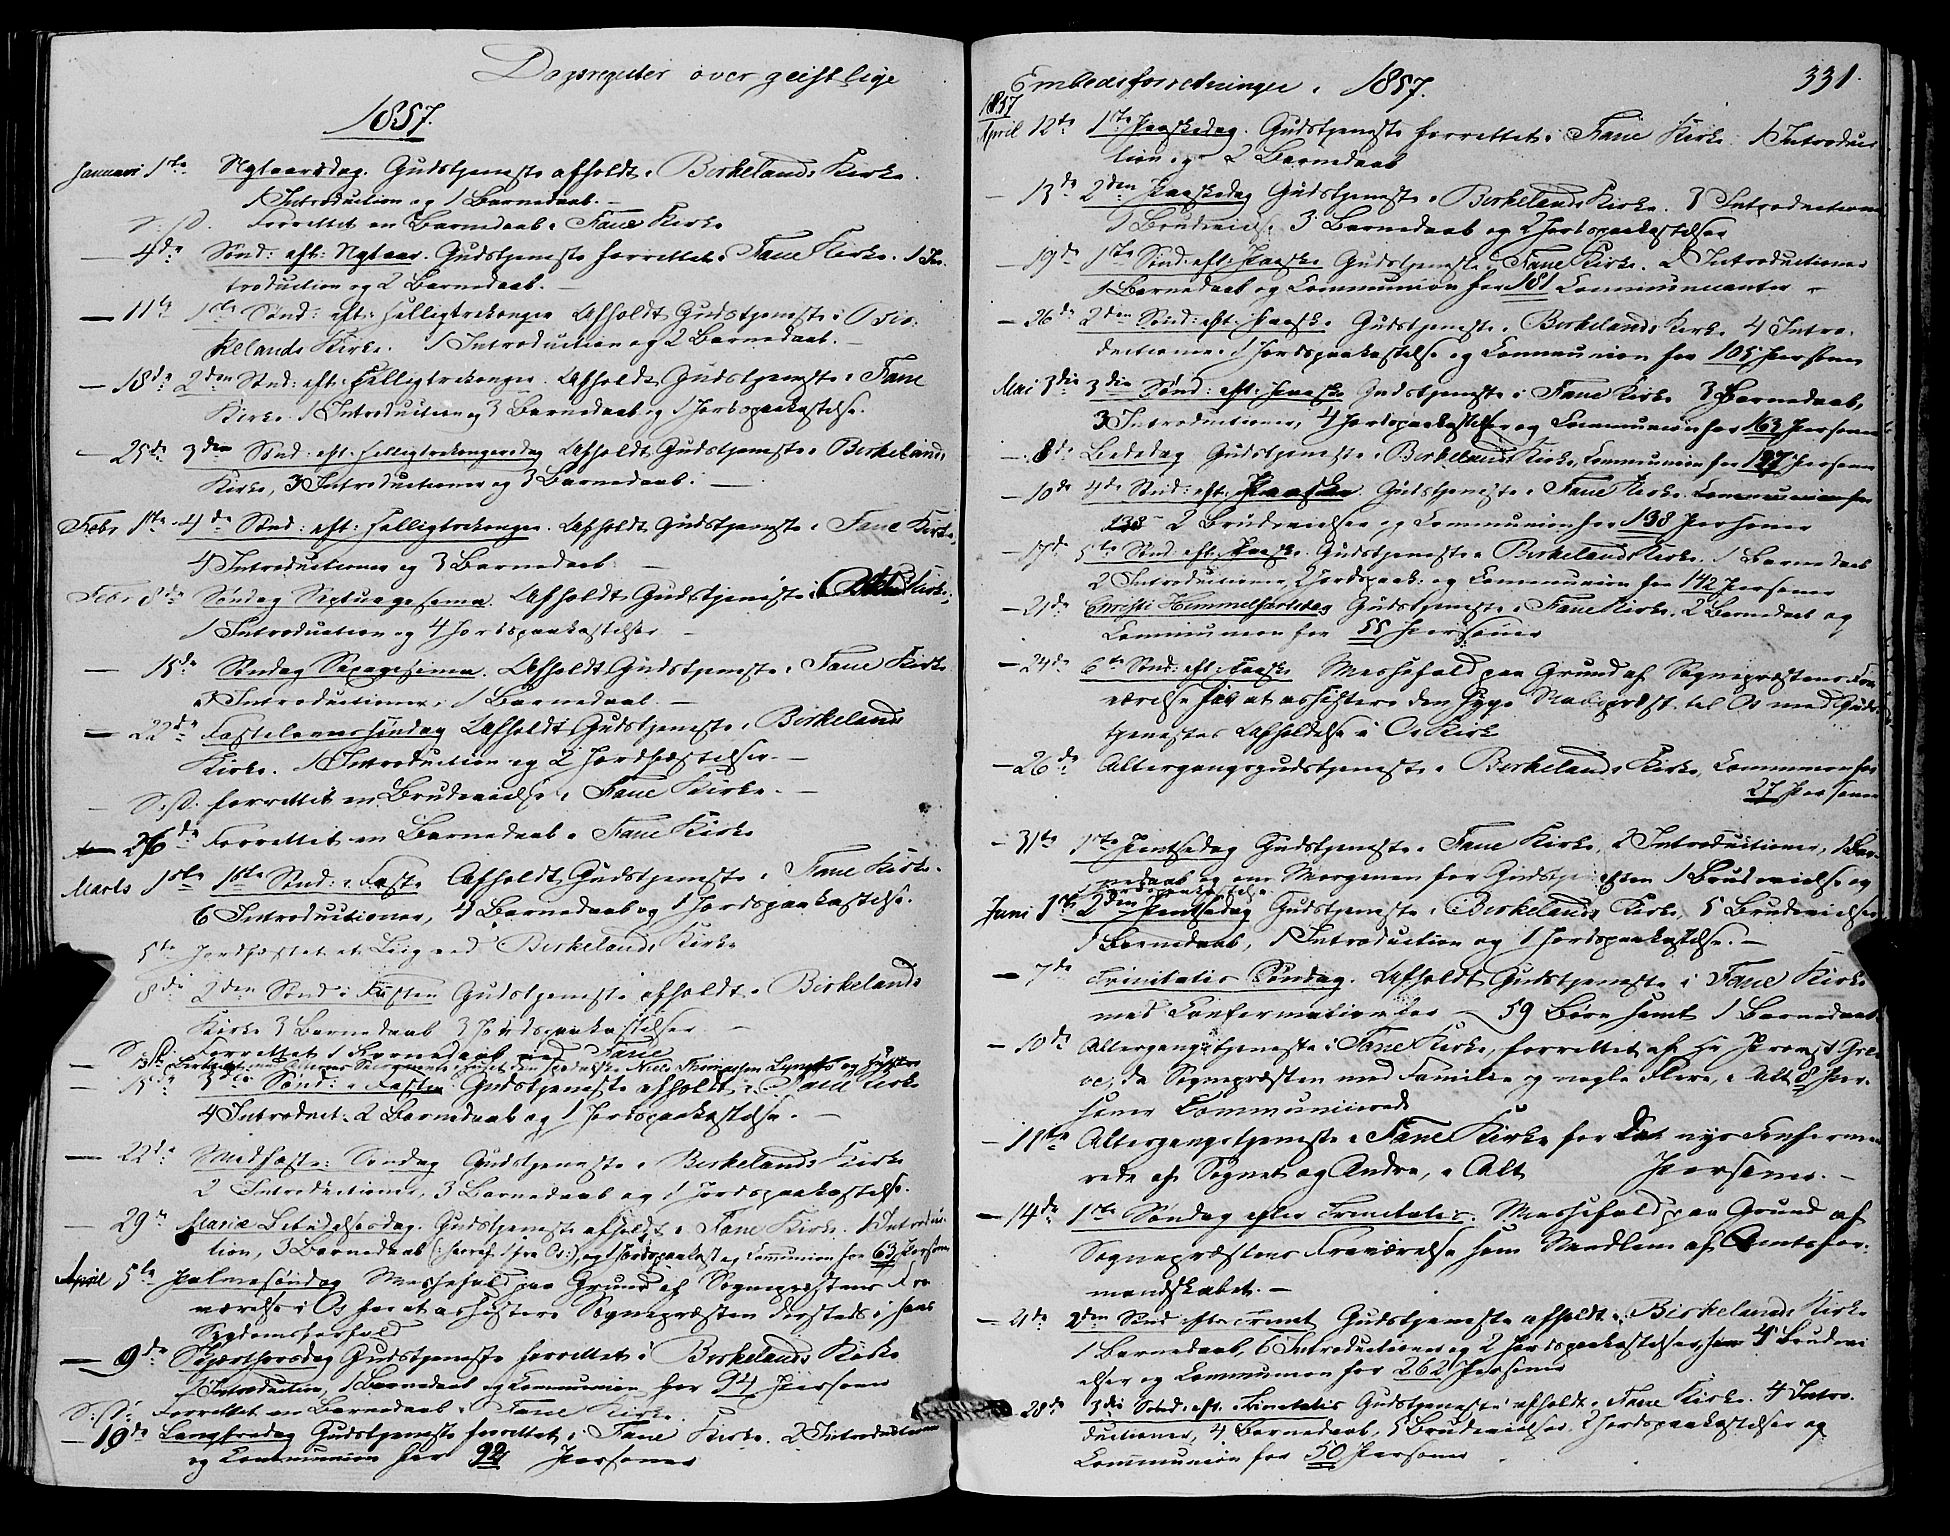 Dagsregister over geistlige
1857.
Januari 1ste Nytaarsdag. Gudstjeneste afholdt i Birkelands Kirke.
1 Introduction og 1 Barnedaab. –
S. D. Forrettet en Barnedaab i Fane Kirke
— 4de Sønd: eft: Nytaar. Gudstjeneste forrettet i Fane Kirke. 1 In-
troduction og 2 Barnedaab. –
— 11te 1ste Sønd: eft: Helligtrekonger Afholdt Gudstjeneste i Bir-
kelands Kirke. 1 Introduction og 2 Barnedaab. –
— 18de 2den Sønd: eft: Helligtrekonger. Afholdt Gudstjeneste i Fane
Kirke. 1 Introduction og 3 Barnedaab og 1 Jordspaakastelse.
— 25de 3die Sønd: eft: Helligtrekongersdag Afholdt Gudstjeneste i Birkelands
Kirke, 3 Introductioner og 3 Barnedaab. —
Febr 1ste 4de Sønd: eft: Helligtrekonger. Afholdt Gudstjeneste i Fane Kirke,
4 Introductioner og 3 Barnedaab. —
Febr 8de Søndag Septuagesima. Afholdt Gudstjeneste i Kirke,
1 Introduction og 4 Jordspaakastelser —
— 15de Søndag Sexagesima. Afholdt Gudstjeneste i Fane Kirke
Introductioner, 1 Barnedaab. —
— 22de Fastelavnssöndag Afholdt Gudstjeneste i Birkelands
Kirke. 1 Introduction og 2 Jordfæstelser. –
— S. D. forrettet en Brudevielse i Fane Kirke. –
— 26de Forrettet en Barnedaab i Fane Kirke
Marts 1ste 1ste Sønd: i Faste Afholdt Gudstjeneste i Fane Kirke.
6 Introductioner, 4 Barnedaab og 1 Jordspaakastelse.
5te Jordfæstet et Liig ved Birkelands Kirke
— 8de 2den Sønd i Fasten Gudstjeneste afholdt i Birkelands
Kirke 3 Barnedaab 3 Jordspaakastelser. —
— S. D. Forrettet 1 Barnedaab ved Fane
— 15de 3die Sønd: i Fasten Gudstjeneste afholdt i Fane Kirke
4 Introduct. 2 Barnedaab og 1 Jordspaakastelse. —
— 22de Midfaste: Søndag Gudstjeneste i Birkelands Kirke
2 Introductioner, 3 Barnedaab og 1 Jordspaakastelse.
— 29de Mariæ Bebudelsesdag. Gudstjeneste afholdt i Fane Kirke. 1 Introduc-
tion, 3 Barnedaab (: hvoraf 1 fra Os:) og 1 Jordspaakast og Communion for 63 Person
April 5te Palmesöndag Messefald paa Grund af Sognepræstens Fra
værelse i Os for at assistere Sognepræsten dersteds i hans
Sygdomsforfald
— 9de Skjærthorsdag Gudstjeneste forrettet i Birkelands Kirke
1 Introduction, 1 Barnedaab og Communion for 94 Personer
S: D: Forrettet en Barnedaab i Fane Kirke.
— 10de Langfredag Gudstjeneste forrettet i Fane Kirke. 2 Introductioner
og Communion for 92 Personer
Embedsforretninger i 1857. 331.
1857
April 12te 1ste Paaskedag. Gudstjeneste forrettet i Fane Kirke. 1 Introduc
tion og 2 Barnedaab
— 13de 2den Paaskedag Gudstjeneste i Birkelands Kirke. 3 Introductioner
1 Brudevielse 3 Barnedaab og 2 Jordspaakastelser
— 19de 1ste Sønd. eft. Paaske Gudstjeneste i Fane Kirke. 2 Introductioner
1 Barnedaab og Communion for 181 Communicanter –
— 26de 2den Sønd: eft: Paaske Gudstjeneste i Birkelands Kirke 4 Intro-
ductioner 1 Jordspaakastelse og Communion for 105 Personer
Mai 3die 3die Sønd: eft: Paaske Gudstjeneste i Fane Kirke 3 Barnedaab,
3 Introductioner, 4 Jordspaakastelser og Communion for 163 Personer
— 8de Bededag Gudstjeneste i Birkelands Kirke, Communion for 127 Personer
— 10de 4de Sønd: eft: Paaske. Gudstjeneste i Fane Kirke. Communion for
138 2 Brudevielser og Communion for 138 Personer
— 17de 5te Sønd: eft: Paaske. Gudstjeneste i Birkelands Kirke. 1 Barnedaab
2 Introductioner, 2 Jordspaak: og Communion for 142 Personer
— 21de Christi Himmelfartsdag Gudstjeneste i Fane Kirke. 2 Barnedaab og
Communion for 55 Personer
— 24de 6te Sønd: eft: Paaske Messefald paa Grund af Sognepræstens Fra
værelse for at assistere den syge Nabopræst til Os med Guds-
tjenestes Afholdelse i Os Kirke
— 26de Altergangsgudstjeneste i Birkelands Kirke, Communion for
27 Personer
— 31te 1ste Pintsedag Gudstjeneste i Fane Kirke, 2 Introductioner, 1 Bar-
nedaab og om Morgenen for Gudstjenesten 1 Brudevielse og
Jordspaakastelse.
Juni 1ste 2den Pintsedag Gudstjeneste i Birkelands Kirke, 5 Brudevielser
1 Barnedaab, 1 Introduction og 1 Jordspaakastelse. –
— 7de Trinitatis Søndag. Afholdt Gudstjeneste i Fane Kirke
med Confirmation for 59 Börn samt 1 Barnedaab.
— 10de Altergangstjeneste i Fane Kirke, forrettet af Hr Provst Gre-
ve, da Sognepræsten med Familie og nogle Flere, i Alt 8 Per-
soner Communicerede
— 11te Altergangstjeneste i Fane Kirke for de nys Confirme-
rede af Sognet og Andre, i Alt Personer. –
— 14de 1ste Søndag efter Trinitatis. Messefald paa Grund af
Sognepræstens Fraværelse som Medlem af Amtsfor-
mandskabet. –
— 21de 2den Sønd efter Trinit Gudstjeneste afholdt i Birkelands Kirke
1 Barnedaab, 6 Introductioner og 2 Jordspaakastelser, 4 Brudevi
elser og Communion for 262 Personer
— 28de 3die Sønd: eft. Trinitatis Gudstjeneste afholdt i Fane Kirke. 4 Intro-
ductioner, 4 Barnedaab, 5 Brudevielser, 2 Jordspaakastelser og
Communion for 50 Personer